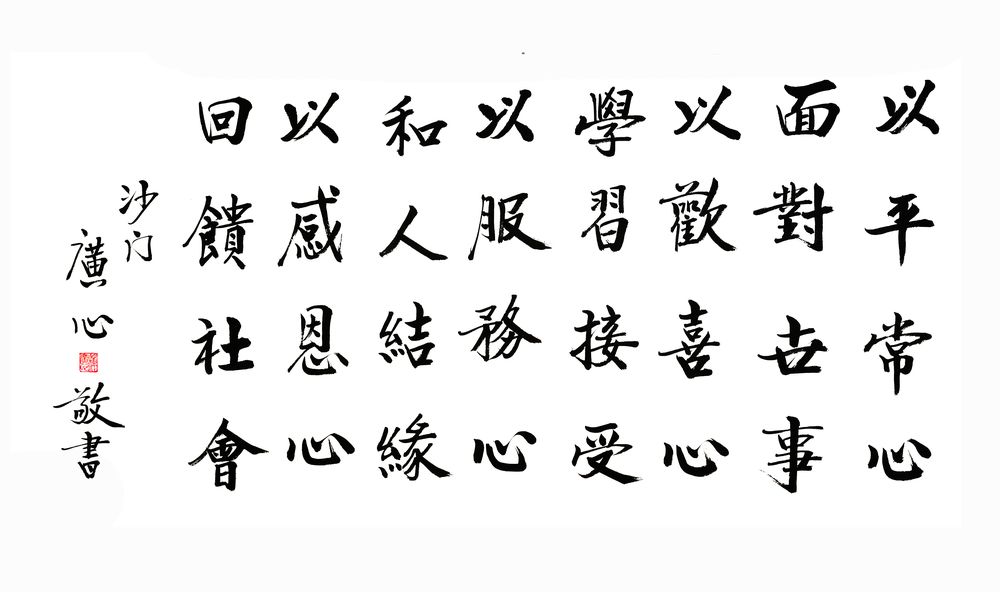 以平常心
面對世事
以歡喜心
學習接受
以服務心
和人結緣
以感恩心
回饋社會
沙门
廣心
敬書